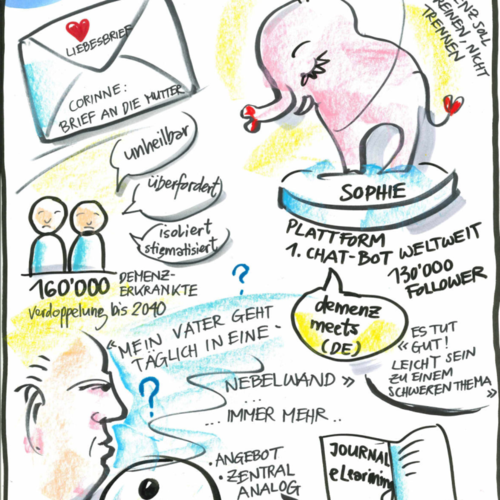 LIEBESBRIEF
CORINNE:
BRIEF AN DIE MUTTER
SOLL
NICHT
TRENNEN
unheilbar
überfordert
isoliert
stigmatisiert
SOPHIE
PLATTFORM
1. CHAT-BOT WELTWEIT
130'000
FOLLOWER
160'000
DEMENZ-
ERKRANKTE
Verdoppelung bis 2040
demenz
meets
(DE)
?
« MEIN VATER GEHT
TÄGLICH IN EINE
NEBELWAND »
...
... IMMER MEHR ..
?
ES TUT
« GUT!
LEICHT SEIN
ZU EINEM
SCHWEREN THEMA »
• ANGEBOT
• ZENTRAL
ANALOG
JOURNAL
eLearning